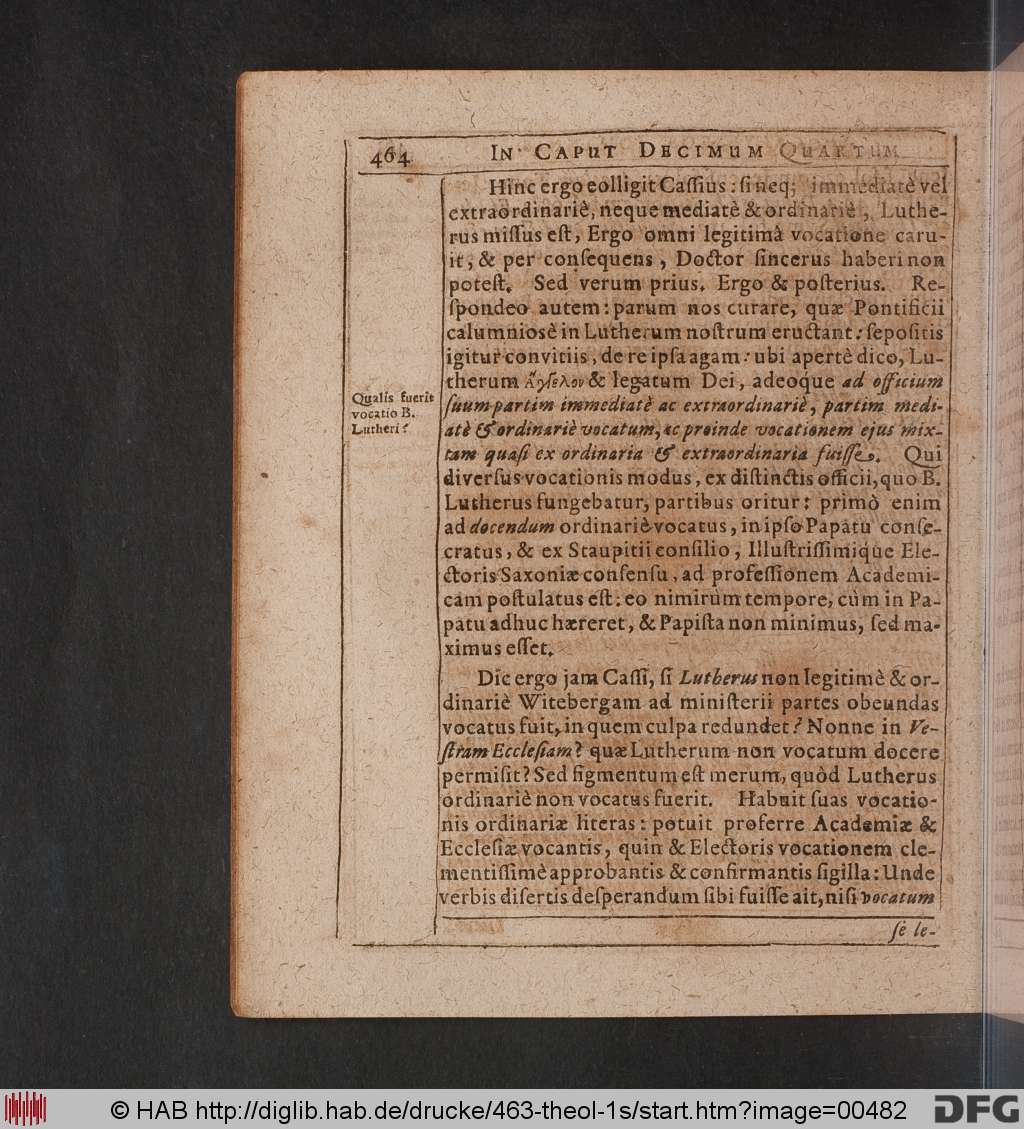 464
IN CAPUT DECIMUM QUARTUM
Hinc ergo eolligit Caſſius: ſi neq; immediatè vel
extraordinariè, neque mediatè & ordinariè, Luthe-
rus miſſus eſt, Ergo omni legitimâ vocatione caru-
it, & per conſequens, Doctor ſincerus haberi non
poteſt. Sed verum prius. Ergo & poſterius. Re-
ſpondeo autem: parum nos curare, quæ Pontificii
calumniosè in Lutherum noſtrum eructant: ſepoſitis
igitur convitiis, de re ipſa agam: ubi apertè dico, Lu-
therum ἄγγελον & legatum Dei, adeoque ad officium
ſuum partim immediatè ac extraordinariè, partim medi-
atè & ordinariè vocatum, ac proinde vocationem ejus mix-
tam quaſi ex ordinaria & extraordinaria fuiſſe. Qui
diverſus vocationis modus, ex diſtinctis officii, quo B.
Lutherus fungebatur, partibus oritur: primò enim
ad docendum ordinariè vocatus, in ipſo Papatu conſe-
cratus, & ex Staupitii conſilio, Illuſtriſſimique Ele-
ctoris Saxoniæ conſenſu, ad profeſſionem Academi-
cam poſtulatus eſt: eo nimirùm tempore, cùm in Pa-
patu adhuc hæreret, & Papiſta non minimus, ſed ma-
ximus eſſet.
Qualis fuerit
vocatio B.
Lutheri?
Dic ergo jam Caſſi, ſi Lutherus non legitimè & or-
dinariè Witebergam ad miniſterii partes obeundas
vocatus fuit, in quem culpa redundet? Nonne in Ve-
ſtram Eccleſiam? quæ Lutherum non vocatum docere
permiſit? Sed figmentum eſt merum, quòd Lutherus
ordinariè non vocatus fuerit. Habuit ſuas vocatio-
nis ordinariæ literas: potuit proferre Academiæ &
Eccleſiæ vocantis, quin & Electoris vocationem cle-
mentiſſimè approbantis & confirmantis ſigilla: Unde
verbis diſertis deſperandum ſibi fuiſſe ait, niſi vocatum
ſe le-
© HAB http://diglib.hab.de/drucke/463-theol-1s/start.htm?image=00482
DFG